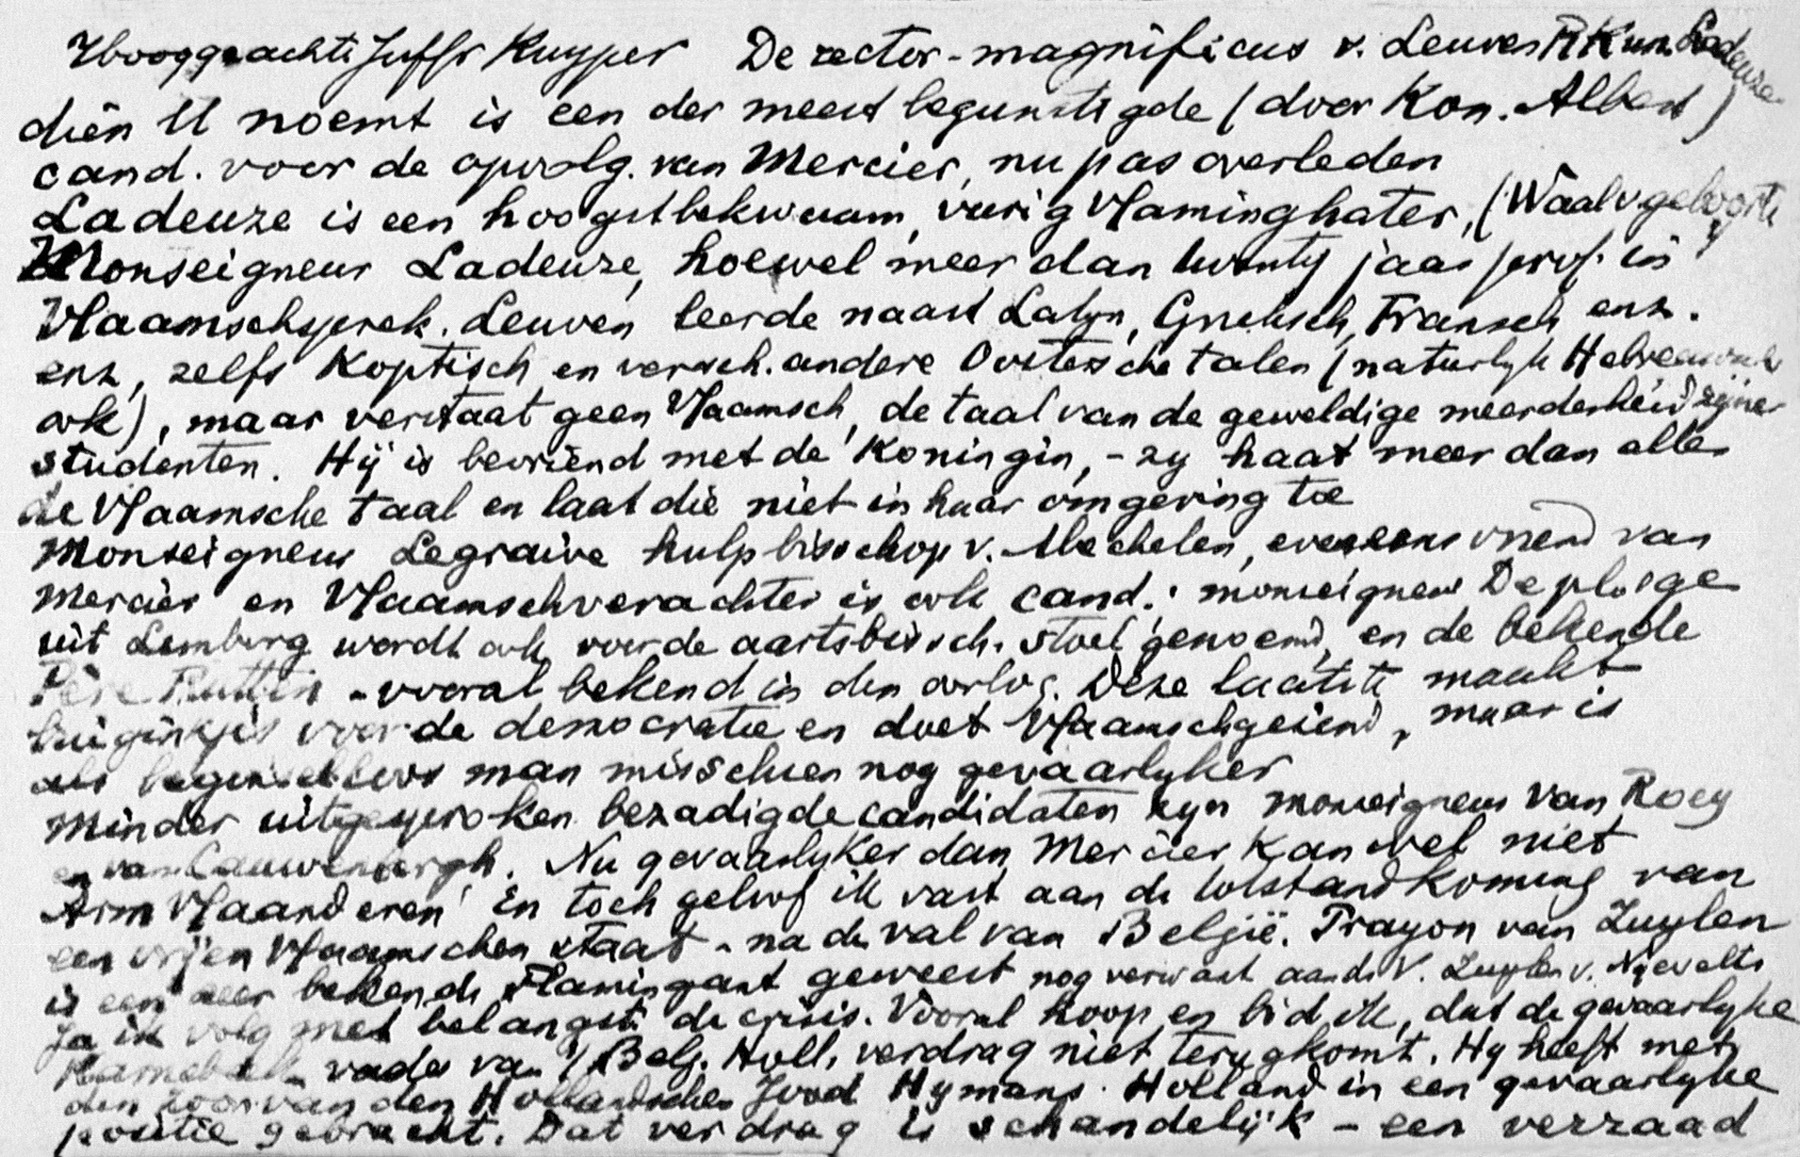 Hooggeachte Juffr Kuyper De rector-magnificus v. Leuven RK un. Ladeuze
dien U noemt is een der meest begunstigde (door Kon. Albert)
cand. voor de opvolg. van Mercier, nu pas overleden
Ladeuze is een hoogstbekwaam, vurig Vlaminghater, (Waal v geboorte
Monseigneur Ladeuze, hoewel meer dan twintig jaar prof. in
Vlaamschsprek. Leuven leerde naast Latyn, Grieksch, Fransch enz.
enz, zelfs Koptisch en versch. andere Oostersche talen (natuurlyk Hebreeuwsch
ook), maar verstaat geen Vlaamsch, de taal van de geweldige meerderheid zijner
studenten. Hij is bevriend met de Koningin, - zy haat meer dan alles
de Vlaamsche taal en laat die niet in haar omgeving toe
Monseigneur Legraive hulpbisschop v. Mechelen, eveneens vriend van
Mercier en Vlaamschverachter is ook cand.; monseigneur De ploege
uit Limburg wordt ook voor de aartsbissch. stoel genoemd, en de bekende
Père Rutten - vooral bekend in den oorlog. Deze laatste maakt
buiginkjes voor de democratie en doet Vlaamschgezind, maar is
als beginselloos man misschien nog gevaarlyker
Minder uitgesproken bezadigde candidaten zyn monseigneur Van Roey
en van Cauwenbergh. Nu gevaarlyker dan Mercier kan wel niet
Arm Vlaanderen! En toch geloof ik vast aan de totstandkoming van
een vrijen Vlaamschen staat - na de val van België. Prayon van Zuylen
is een zeer bekende Flamingant geweest nog verwant aan de V. Zuylen v. Nyevelts
Ja ik volg met belangst. de crisis. Vooral hoop en bid ik, dat de gevaarlyke
vader van 't Belg. Holl. verdrag niet terugkomt. Hy heeft met
den zoon van den Hollandschen Jood Hymans Holland in een gevaarlyke
positie gebracht. Dat verdrag is schandelijk - een verraad